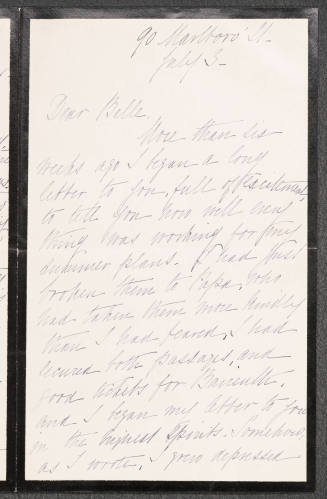 90 Marlboro' St.
July 3.
Dear Belle,
More than six
weeks ago I began a long
letter to you, full of excitement,
to tell you how well every
thing was working for my
summer plans. I had just
broken them to Papa, who
had taken them more kindly
than I had feared, I had
secured both passages, and
good tickets for Baireuth,
and I began my letter to you
in the highest spirits. Somehow,
as I wrote, I grew depressed